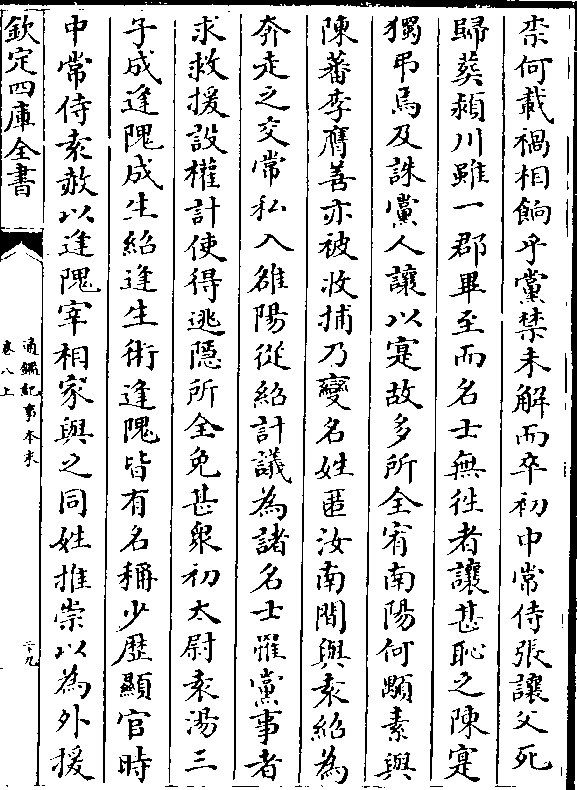 柰何載禍相餉乎黨禁未解而卒初中常侍張讓父死
歸葬潁川雖一郡畢至而名士無往者讓甚恥之陳寔
獨弔焉及誅黨人讓以寔故多所全宥南陽何顒素與
陳蕃李膺善亦被收捕乃變名姓匿汝南間與袁紹為
奔走之交常私入雒陽從紹計議為諸名士罹黨事者
求救援設權計使得逃隱所全免甚衆初太尉袁湯三
子成逢隗成生紹逢生術逢隗皆有名稱少歷顯官時
中常侍袁赦以逢隗宰相家與之同姓推崇以為外援
欽定四庫全書
通鑑紀事本末
卷八上
二十九